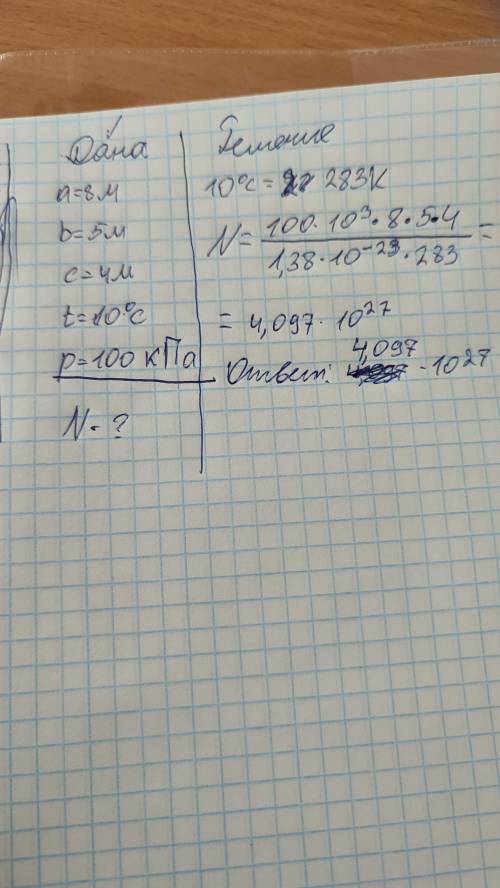 Дано
a=8м
b=5м
c=4м
t=10°C
p=100 кПа
N-?
Решение
10°C= 283K
N= 100·10³·8·5·4 / 1,38·10⁻²³·283 =
= 4,097·10²⁷
Ответ: 4,097·10²⁷